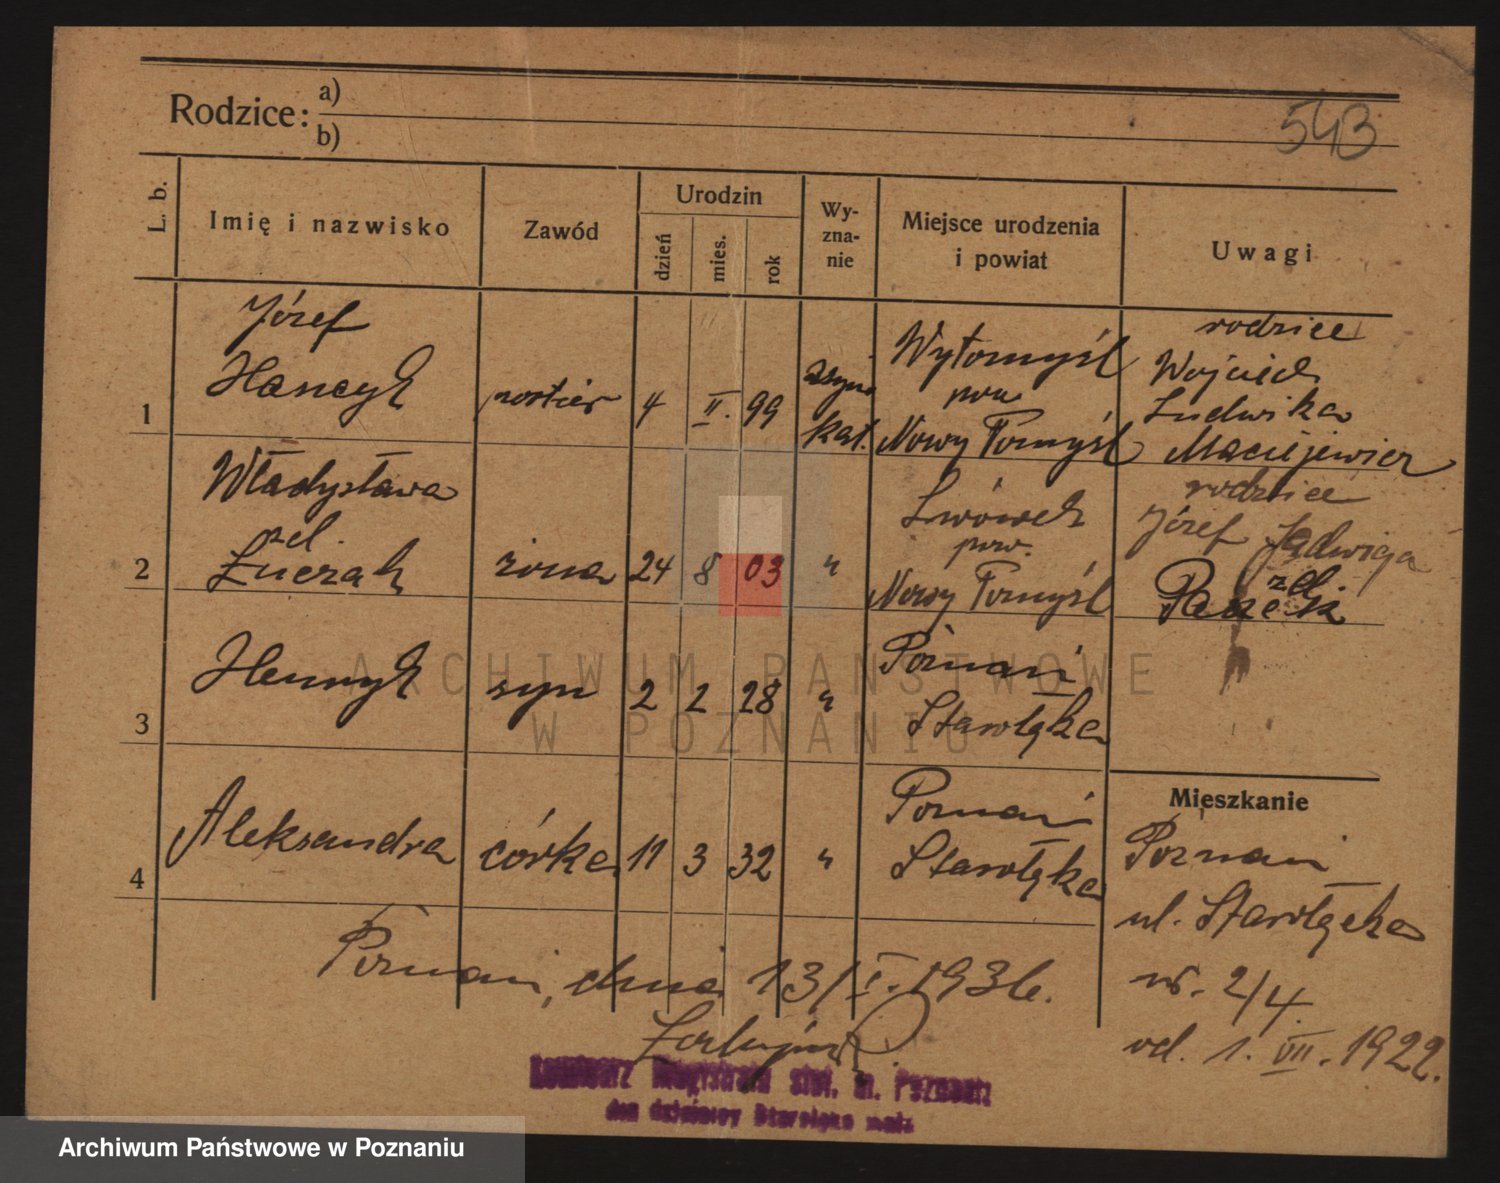 543
Rodzice:
a)
b)
L. b.
Imię i nazwisko
Zawód
Urodzin
dzień
mies.
rok
Wy-
zna-
nie
Miejsce urodzenia
i powiat
Uwagi
1
Józef
Hancyk
portier
4 II. 99
kat.
Wytomyśl
pow
Nowy Tomyśl
rodzice
Wojciech
Ludwika
Maciejewicz
2
Władysława
zd.
Łuczak
żona
24 8 03
"
Lwówek
pow.
Nowy Tomyśl
rodzice
Józef Jadwiga
zd.
3
Henryk
syn
2 2 28
"
Poznań
Starołęka
4
Aleksandra
córka
11 3 32
"
Poznań
Starołęka
Mieszkanie
Poznań
ul. Starołęcka
nr. 2/4.
od. 1. VII. 1922.
Poznań, dnia 13/I. 1936.
Komisarz Magistratu stoł. m. Poznania
dla dzielnicy Starołęka mała
ARCHIWUM PAŃSTWOWE
W POZNANIU
Archiwum Państwowe w Poznaniu